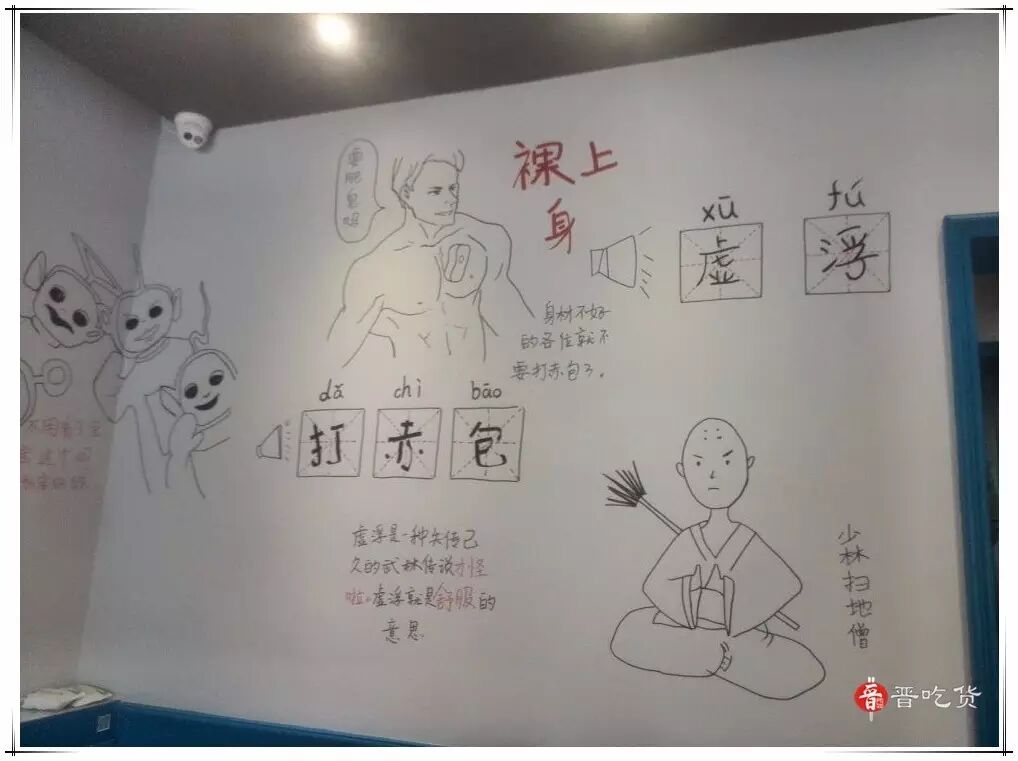 要肥皂吗
裸上
身
xū
fú
虚
浮
身材不好
的各位就不
要打赤包了。
dǎ
chì
bāo
打
赤
包
虚浮是一种失传已
久的武林传说才怪
啦。虚浮就是舒服的
意思
少林扫地僧
晋吃货